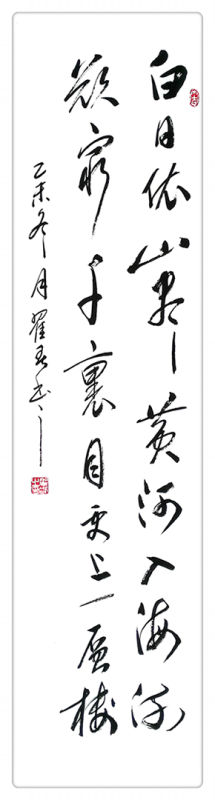 白日依山尽黄河入海流
欲穷千裏目更上一层楼
乙未冬月翟春书